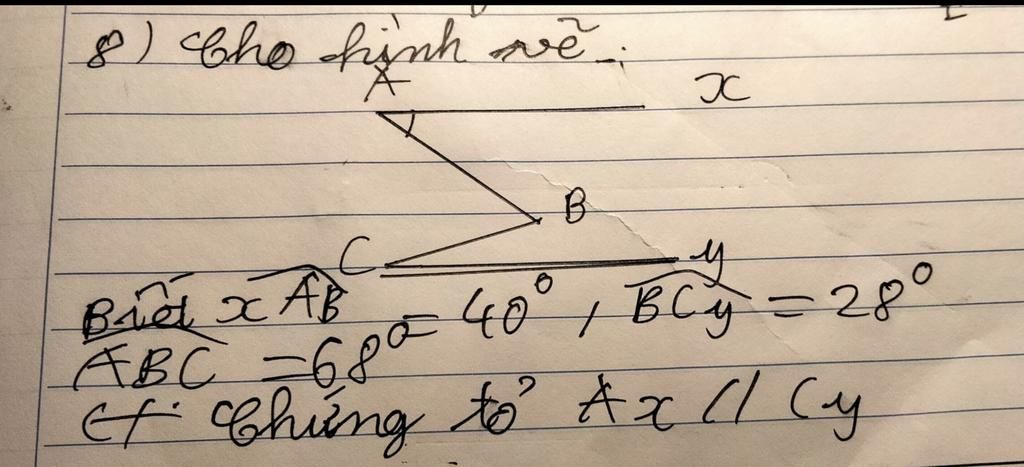 8) Cho hình vẽ.
A x
B
C y
Biết xAB = 40°, BCy = 28°
ABC = 68°
CT. Chứng tỏ Ax // Cy